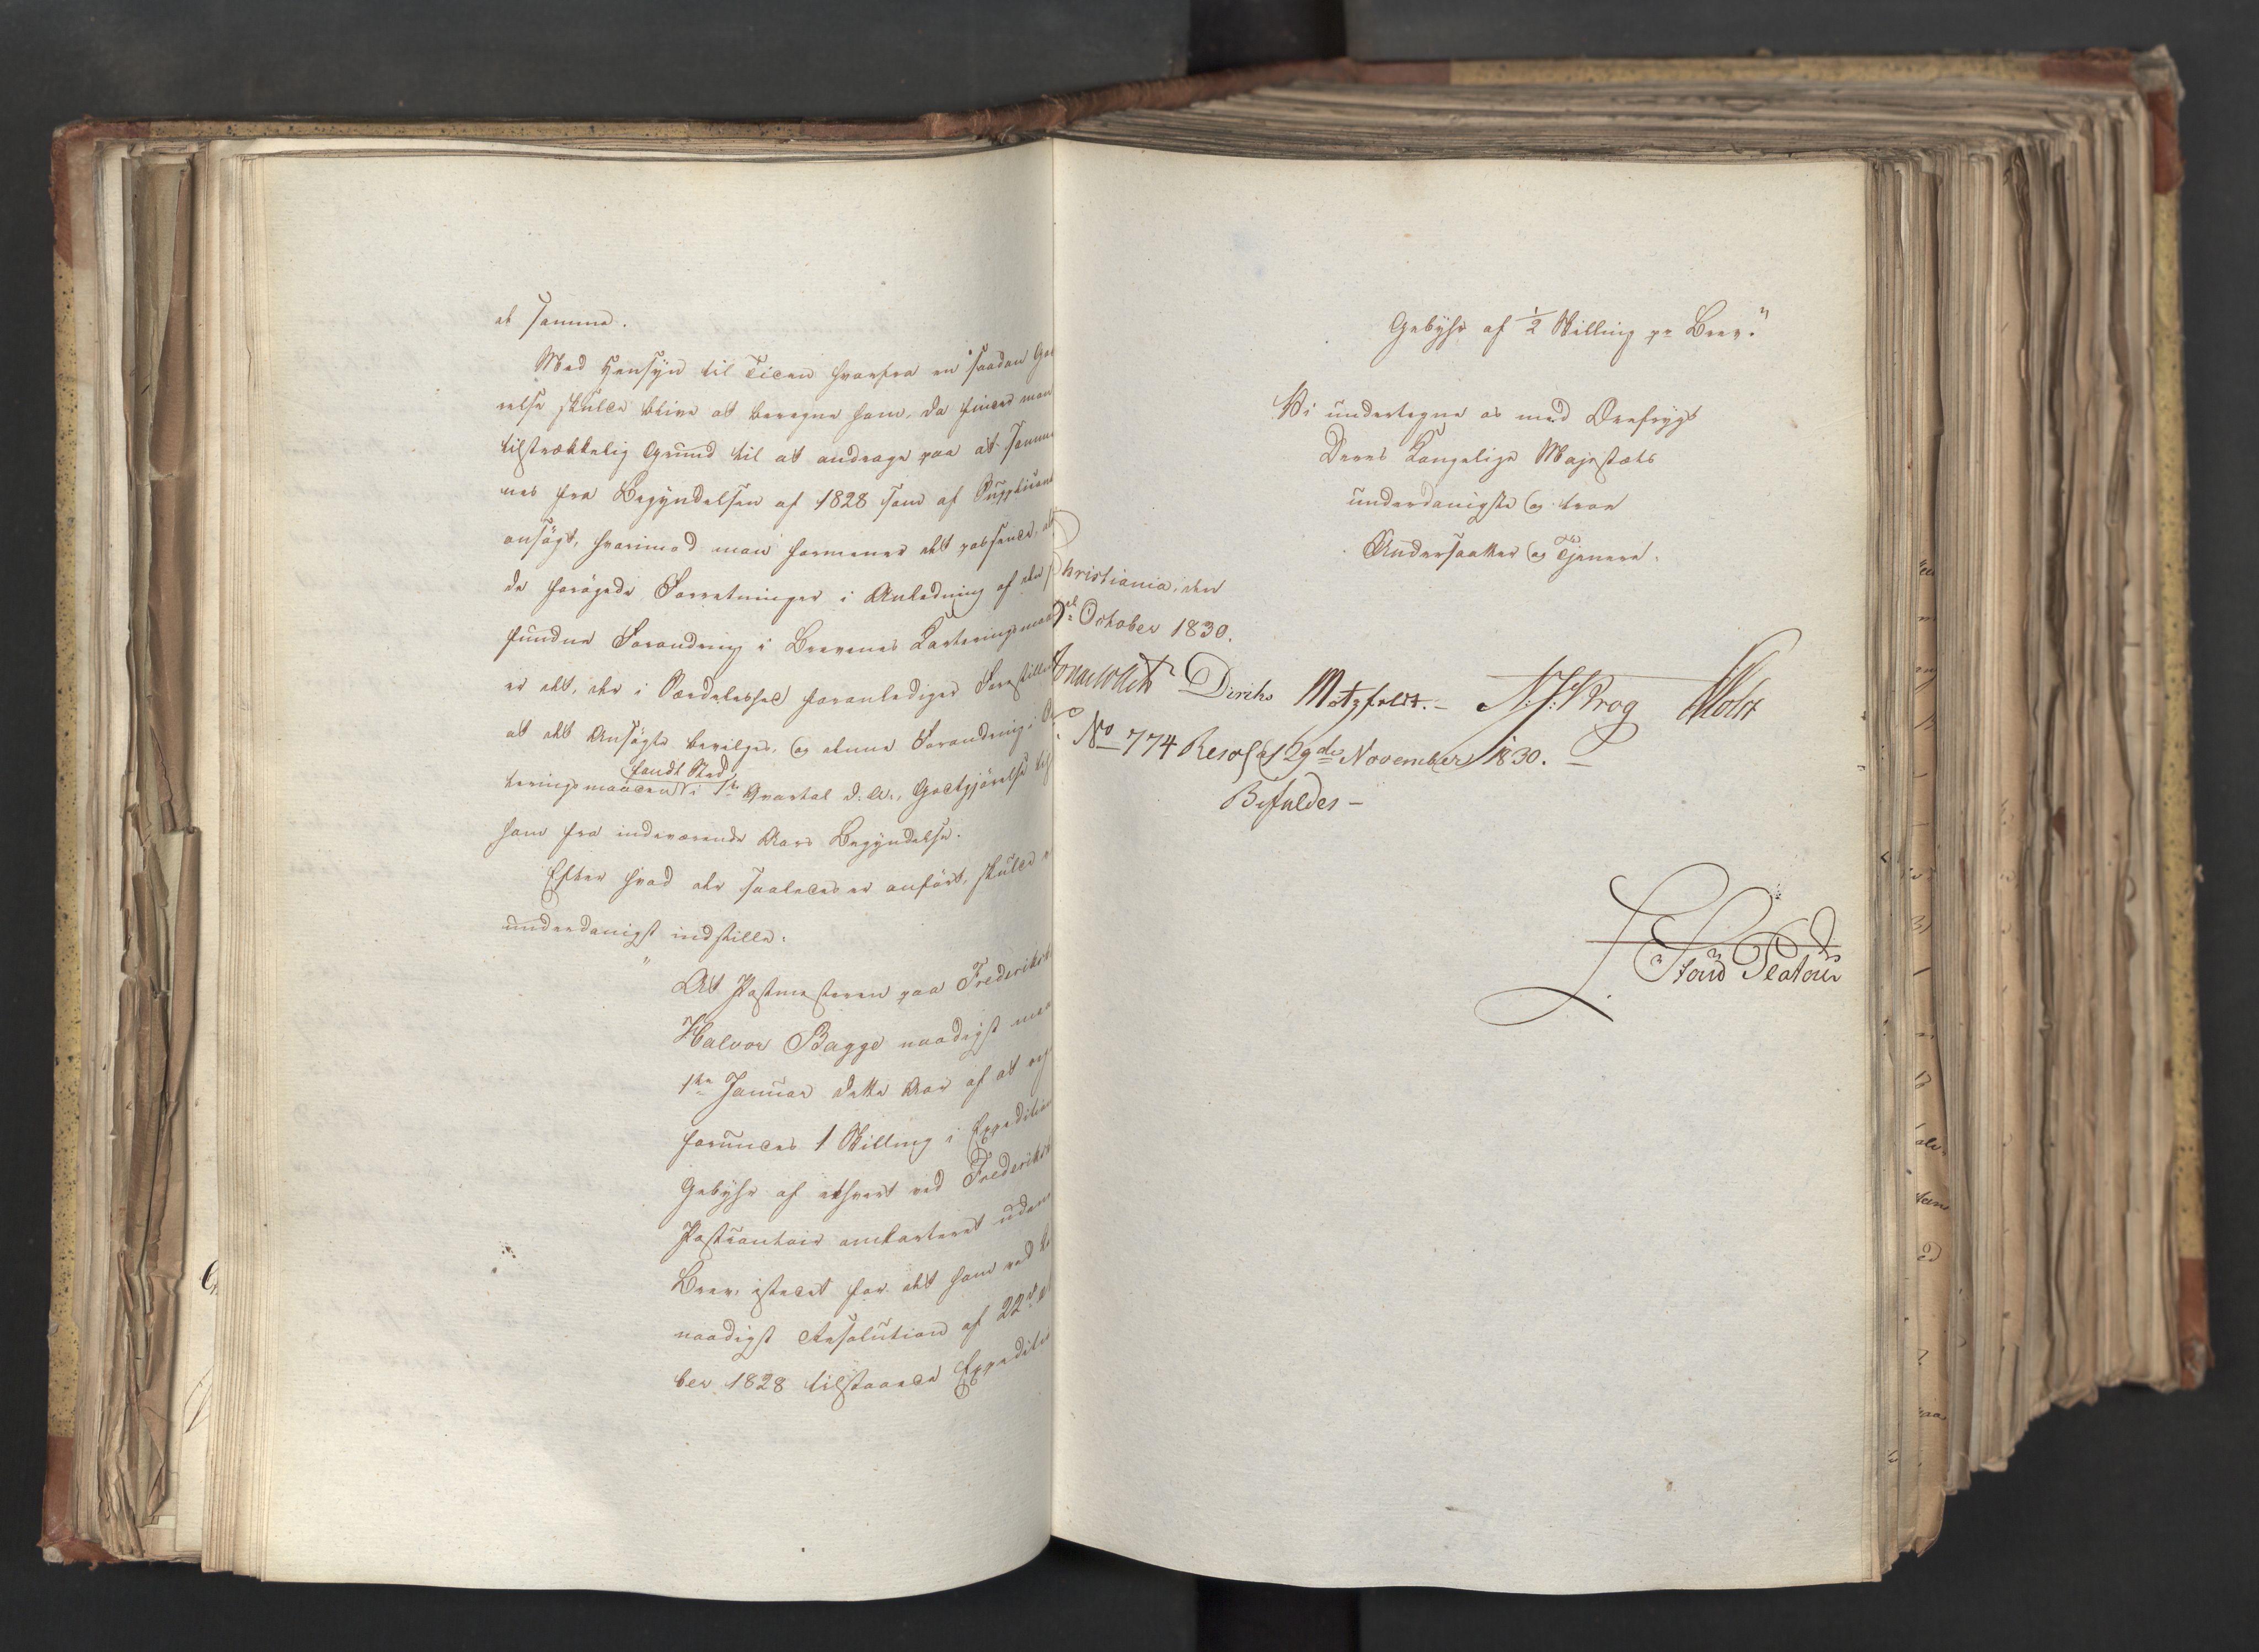 at samme.
Med Hensyn til Tiden hvorfra en saadan God
relse skulde blive at beregne ham, da finder man
tilstrækkelig Grund til at andrage paa at samme
nes fra Begyndelsen af 1828 som af Supplicant
ansøgt, hvorimod man formener det passende, at
de forøgede Forretninger i Anledning af den
fundne Forandring i Brevenes Karteringsmaa
er det, der i Særdeleshed foranlediger Forestille
at det Ansøgte bevilges, og denne Forandring i
fandt Sted
teringsmaaden i 1ste Qvartal d: A:, Godtgjørelse
ham fra indeværende Aars Begyndelse.
Efter hvad der saaledes er anført, skulde
underdanigst indstille:
" At Postmesteren paa Frederiks
Halvor Bagge naadigst maa
1ste Januar dette Aar af at
forundes 1 Skilling i Expedition
Gebyhr af ethvert ved Frederiks
Postcontoir omkarteret uden
Brev, istedet for det ham ved
naadigst Resolution af 22de
ber 1828 tilstaaede Expeditio
Gebyhr af 1/2 Skilling pr Brev."
Vi undertegne os med Ærefrygt
Deres Kongelige Majestæts
underdanigste og troe
Undersaatter og Tjenere.
Christiania, den
October 1830.
Diriks Motzfeldt. N. J: Krog Holst
No 774 Resol af 29de November 1830.
Bifaldes -